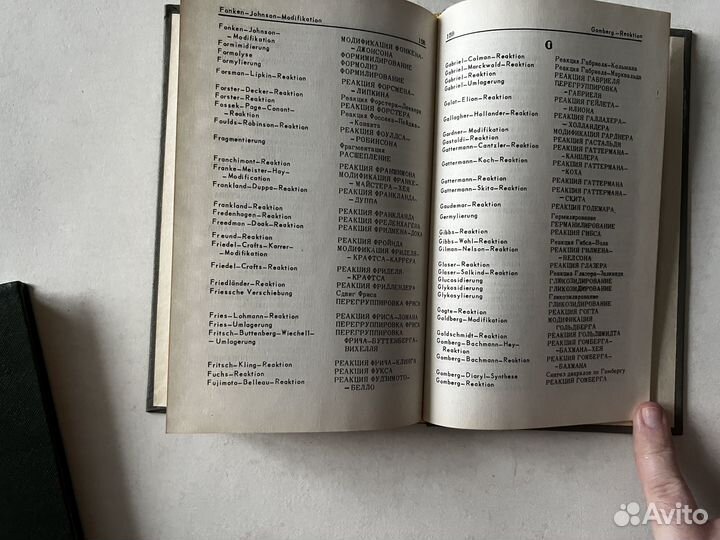 Fonken–Johnson–Modifikation 198
Fonken–Johnson– МОДИФИКАЦИЯ ФОНКЕНА–
–Modifikation –ДЖОНСОНА
Formimidierung ФОРМИМИДИРОВАНИЕ
Formolyse ФОРМОЛИЗ
Formylierung ФОРМИЛИРОВАНИЕ
Forsman–Lipkin–Reaktion РЕАКЦИЯ ФОРСМЕНА–
–ЛИПКИНА
Forster–Decker–Reaktion Реакция Форстера–Деккера
Forster–Reaktion РЕАКЦИЯ ФОРСТЕРА
Fossek–Page–Conant– Реакция Фоссека–Пейджа–
–Reaktion –Конанта
Foulds–Robinson–Reaktion РЕАКЦИЯ ФОУЛЛСА–
–РОБИНСОНА
Fragmentierung Фрагментация
РАСЩЕПЛЕНИЕ
Franchimont–Reaktion РЕАКЦИЯ ФРАНШИМОНА
Franke–Meister–Hay– МОДИФИКАЦИЯ ФРАНКЕ–
–Modifikation –МАЙСТЕРА–ХЕЯ
Frankland–Duppa–Reaktion РЕАКЦИЯ ФРАНКЛАНДА–
–ДУППА
Frankland–Reaktion РЕАКЦИЯ ФРАНКЛАНДА
Fredenhagen–Reaktion РЕАКЦИЯ ФРЕДЕНХАГЕНА
Freedman–Doak–Reaktion РЕАКЦИЯ ФРИДМЕНА–ДОКА
Freund–Reaktion РЕАКЦИЯ ФРОЙНДА
Friedel–Crafts–Karrer– МОДИФИКАЦИЯ ФРИДЕЛЯ–
–Modifikation –КРАФТСА–КАРРЕРА
Friedel–Crafts–Reaktion РЕАКЦИЯ ФРИДЕЛЯ–
–КРАФТСА
Friedländer–Reaktion РЕАКЦИЯ ФРИДЛЕНДЕРА
Friessche Verschiebung Сдвиг Фриса
ПЕРЕГРУППИРОВКА ФРИСА
Fries–Lohmann–Reaktion РЕАКЦИЯ ФРИСА–ЛОМАНА
Fries–Umlagerung ПЕРЕГРУППИРОВКА ФРИСА
Fritsch–Buttenberg–Wiechell– ПЕРЕГРУППИРОВКА
–Umlagerung ФРИЧА–БУТТЕНБЕРГА–
ВИХЕЛЛЯ
Fritsch–Kling–Reaktion РЕАКЦИЯ ФРИЧА–КЛИНГА
Fuchs–Reaktion РЕАКЦИЯ ФУКСА
Fujimoto–Belleau–Reaktion РЕАКЦИЯ ФУДЗИМОТО–
–БЕЛЛО
Gomberg–Reaktion
G
Gabriel–Colman–Reaktion Реакция Габриеля–Кольмана
Gabriel–Marckwald–Reaktion Реакция Габриеля–Марквальда
Gabriel–Reaktion РЕАКЦИЯ ГАБРИЕЛЯ
Gabriel–Umlagerung ПЕРЕГРУППИРОВКА
–ГАБРИЕЛЯ
Galat–Elion–Reaktion РЕАКЦИЯ ГЕЙЛЕТА–
–ИЛИОНА
Gallagher–Hollander–Reaktion РЕАКЦИЯ ГАЛЛАХЕРА–
–ХОЛЛАНДЕРА
Gardner–Modifikation МОДИФИКАЦИЯ ГАРДНЕРА
Gastaldi–Reaktion РЕАКЦИЯ ГАСТАЛЬДИ
Gattermann–Cantzler–Reaktion РЕАКЦИЯ ГАТТЕРМАНА–
–КАНЦЛЕРА
Gattermann–Koch–Reaktion РЕАКЦИЯ ГАТТЕРМАНА–
–КОХА
Gattermann–Reaktion РЕАКЦИЯ ГАТТЕРМАНА
Gattermann–Skita–Reaktion РЕАКЦИЯ ГАТТЕРМАНА–
–СКИТА
Gaudemar–Reaktion РЕАКЦИЯ ГОДЕМАРА
Germylierung Гермилирование
ГЕРМАНИЛИРОВАНИЕ
Gibbs–Reaktion РЕАКЦИЯ ГИБСА
Gibbs–Wohl–Reaktion Реакция Гибса–Воля
Gilman–Nelson–Reaktion РЕАКЦИЯ ГИЛМЕНА–
–НЕЛСОНА
Glaser–Reaktion РЕАКЦИЯ ГЛАЗЕРА
Glaser–Salkind–Reaktion Реакция Глазера–Залкинда
Glucosidierung ГЛИКОЗИДИРОВАНИЕ
Glykosidierung ГЛИКОЗИДИРОВАНИЕ
Glykosylierung Гликозилирование
ГЛИКОЗИДИРОВАНИЕ
Gogte–Reaktion РЕАКЦИЯ ГОГТА
Goldberg–Modifikation МОДИФИКАЦИЯ
ГОЛЬДБЕРГА
Goldschmidt–Reaktion РЕАКЦИЯ ГОЛЬДШМИДТА
Gomberg–Bachmann–Hey– РЕАКЦИЯ ГОМБЕРГА–
Reaktion –БАХМАНА–ХЕЯ
Gomberg–Bachmann–Reaktion РЕАКЦИЯ ГОМБЕРГА–
–БАХМАНА
Gomberg–Diaryl–Synthese Синтез диарилов по Гомбергу
Gomberg–Reaktion РЕАКЦИЯ ГОМБЕРГА
Avito